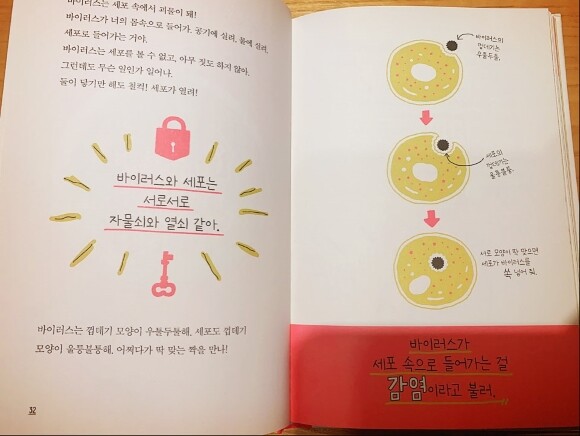 바이러스는 세포 속에서 괴물이 돼!
바이러스가 너의 몸속으로 들어가. 공기에 실려, 물에 실려,
세포로 들어가는 거야.
바이러스는 세포를 볼 수 없고, 아무 짓도 하지 않아.
그런데도 무슨 일인가 일어나.
둘이 닿기만 해도 철컥! 세포가 열려!
바이러스와 세포는
서로서로
자물쇠와 열쇠 같아.
바이러스는 껍데기 모양이 우툴두툴해. 세포도 껍데기
모양이 울퉁불퉁해. 어쩌다가 딱 맞는 짝을 만나!
32
바이러스의
껍데기는
우툴두툴.
세포의
껍데기는
울퉁불퉁.
서로 모양이 딱 맞으면
세포가 바이러스를
쏙 넣어 줘.
바이러스가
세포 속으로 들어가는 걸
감염이라고 불러.